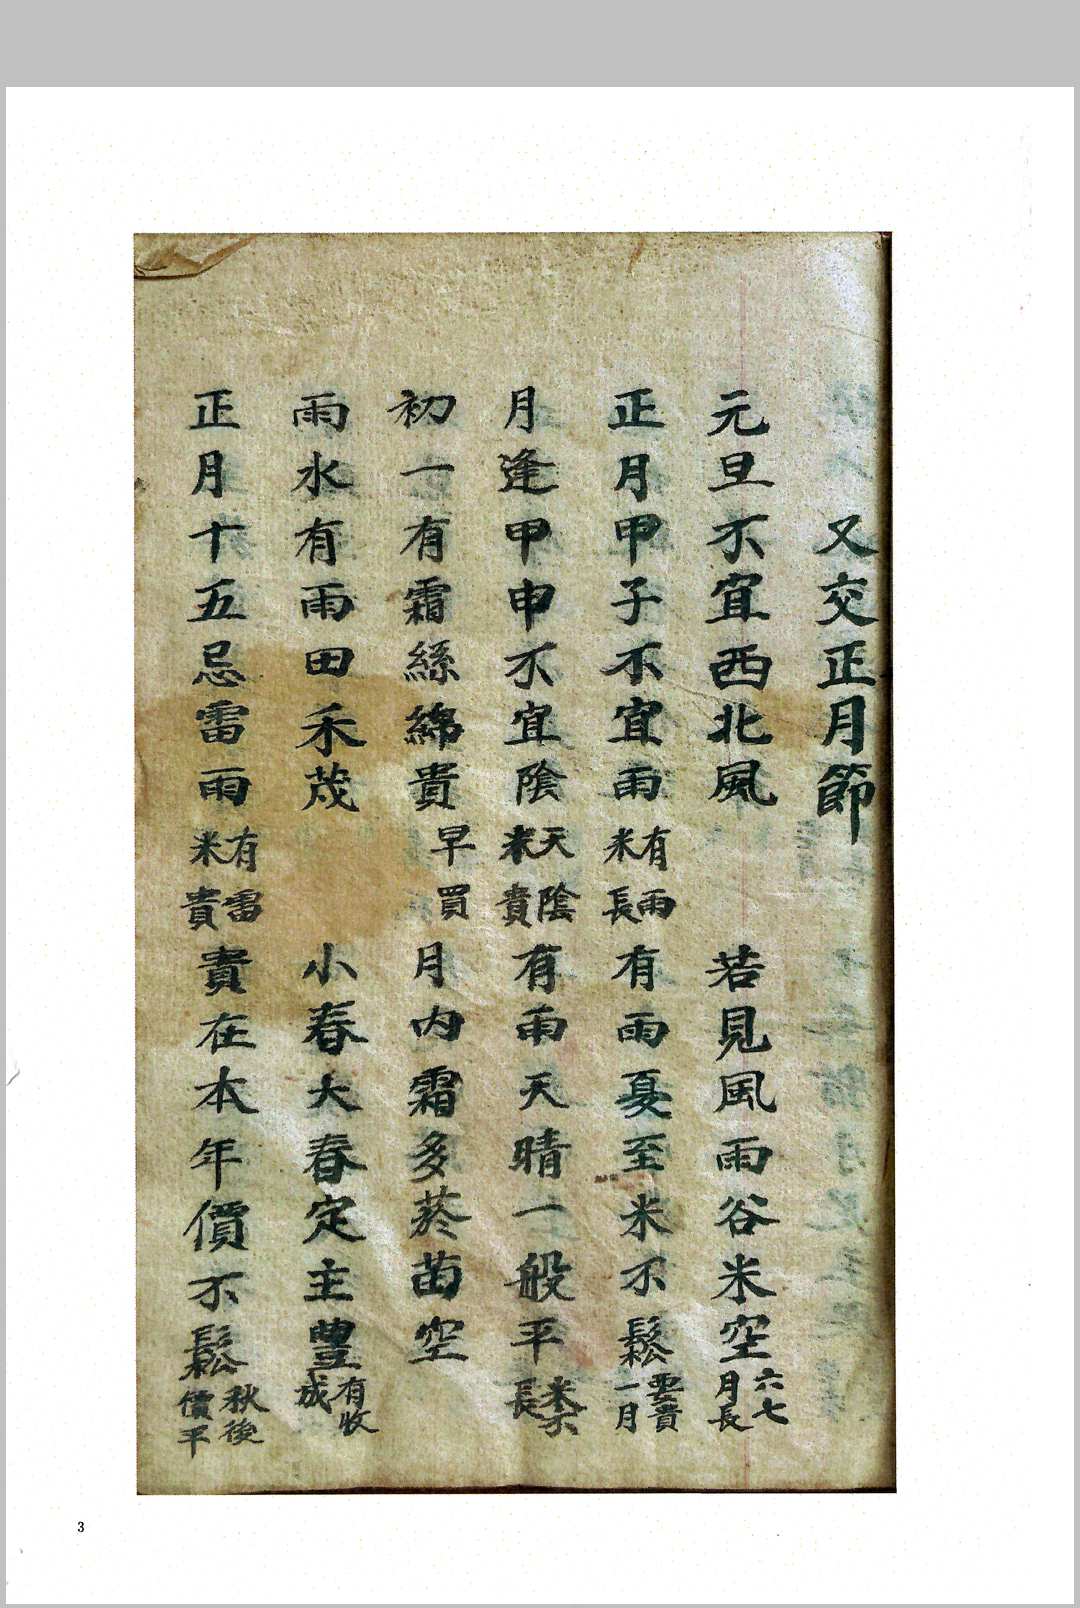 又交正月節
元旦不宜西北風 若見風雨谷米空六七月長
正月甲子不宜雨有雨米長有雨夏至米不鬆要貴一月
月逢甲申不宜陰天陰米貴有雨天晴一般平米不長
初一有霜絲綿貴早買月内霜多菸苗空
雨水有雨田禾茂 小春大春定主豐有收成
正月十五忌雷雨有雷米貴貴在本年價不鬆秋後價平
3